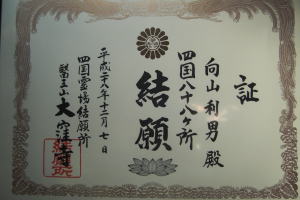 証
向山利男殿
四国八十八ケ所
結願
平成二十八年十二月七日
四国霊場結願所
醫王山 大窪寺